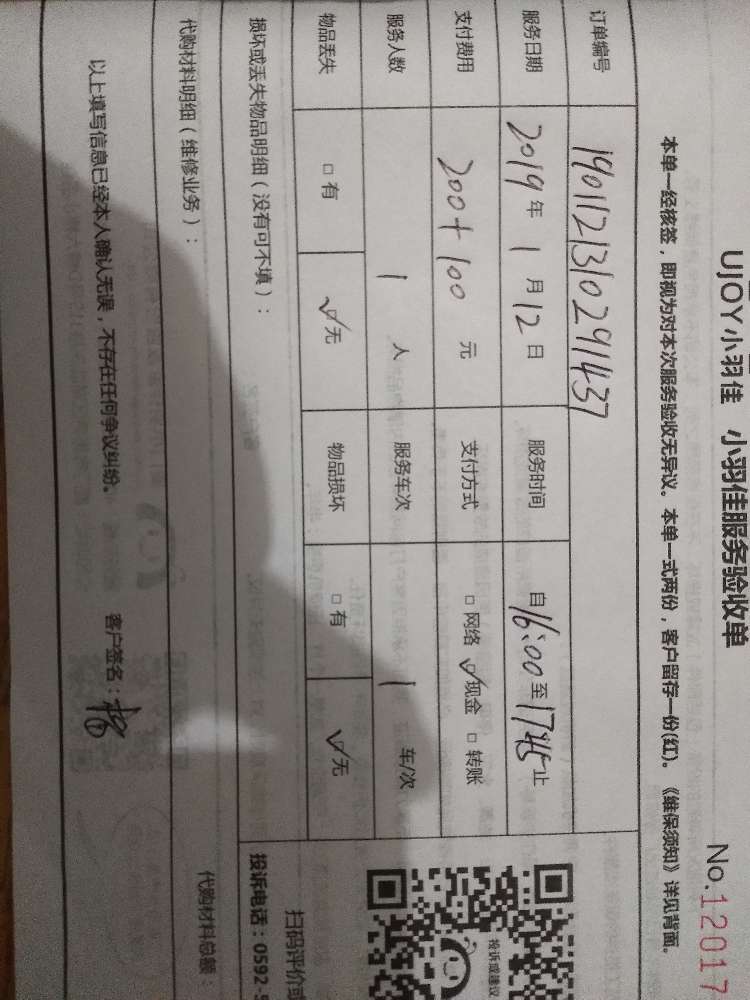 UJOY小羽佳 小羽佳服务验收单
No.12017
本单一经核签，即视为对本次服务验收无异议。本单一式两份，客户留存一份(红)。《维保须知》详见背面。
订单编号 1901121310291437
服务日期 2019年1月12日 服务时间 自16:00至17:45止
支付费用 200+100元 支付方式 □网络 ☑现金 □转账
服务人数 1人 服务车次 1车/次
物品丢失 □有 ☑无 物品损坏 □有 ☑无
投诉或建议
扫码评价或
损坏或丢失物品明细（没有可不填）：
投诉电话：0592-5
代购材料明细（维修业务）：
代购材料总额：
以上填写信息已经本人确认无误，不存在任何争议纠纷。 客户签名：